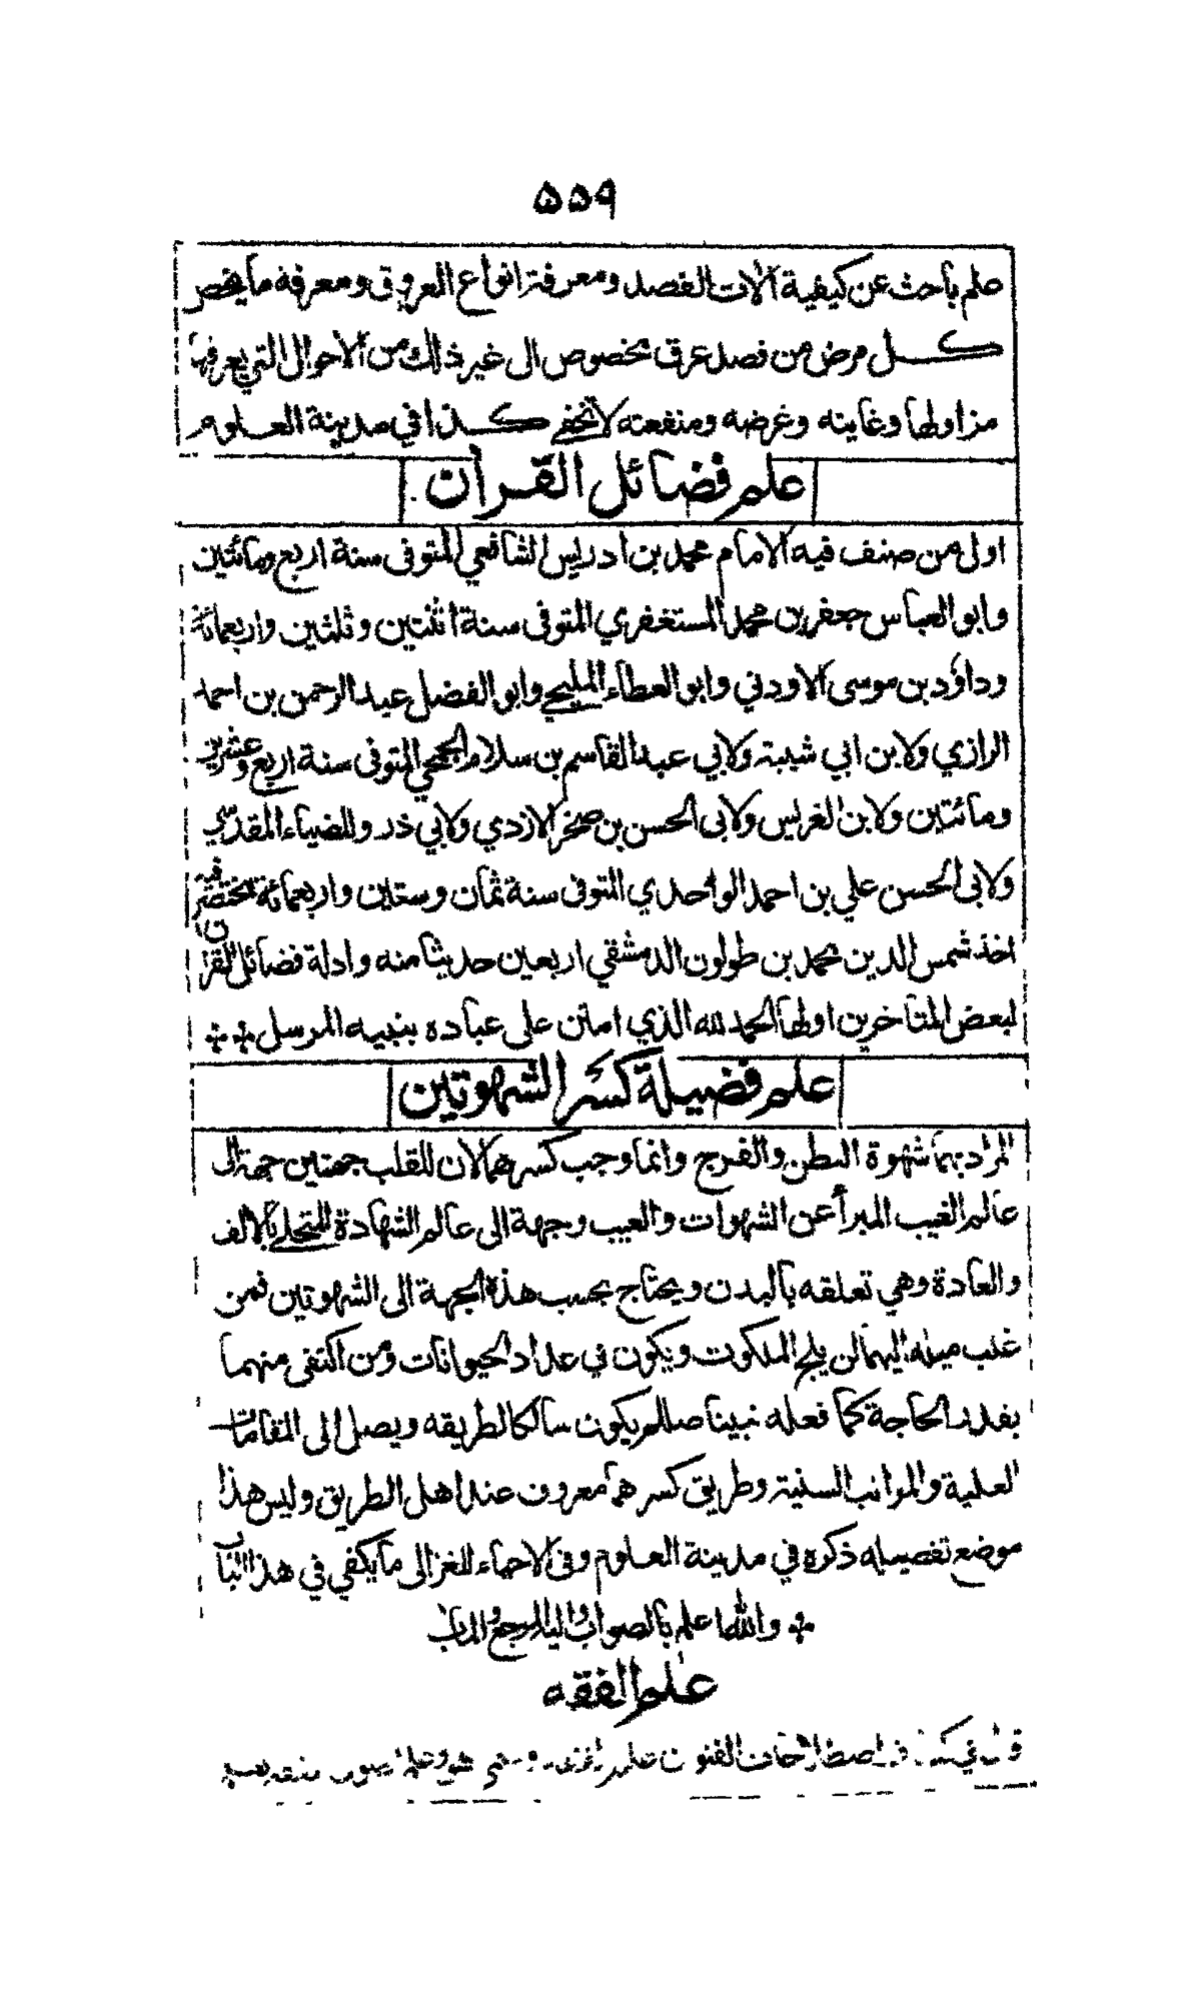 ۵۵۹
علم باحث عن كيفية آلات الفصد ومعرفة انواع العروق ومعرفة ما يخص
كل مرض من فصد عرق مخصوص الى غير ذالك من الاحوال التي يعرفها
مزاولها وغايته وغرضه ومنفعته لا تخفى كذا في مدينة العلوم
علم فضائل القرآن
اول من صنف فيه الامام محمد بن ادريس الشافعي المتوفى سنة اربع ومائتين
وابو العباس جعفر بن محمد المستغفري المتوفى سنة اثنتين وثلثين واربعمائة
وداؤد بن موسى الاودني وابو العطاء المليحي وابو الفضل عبد الرحمن بن احمد
الرازي ولابن ابي شيبة ولابي عبد القاسم بن سلام الجمحي المتوفى سنة اربع وعشرين
ومائتين ولابن الضريس ولابى الحسن بن صخر الازدي ولابي ذر وللضياء المقدسي
ولابى الحسن علي بن احمد الواحدي المتوفى سنة ثمان وستين واربعمائة مختصر فيه
اخذ شمس الدين محمد بن طولون الدمشقي اربعين حديثا منه وادلة فضائل القرآن
لبعض المتأخرين اولها الحمد لله الذي امتن على عباده بنبيه المرسل
علم فضيلة كسر الشهوتين
المراد بهما شهوة البطن والفرج وانما وجب كسرهما لان للقلب جهتين جهة الى
عالم الغيب المبرأ عن الشهوات والعيب وجهة الى عالم الشهادة المتحلي بالالف
والعادة وهي تعلقه بالبدن ويحتاج بحسب هذه الجهة الى الشهوتين فمن
غلب ميله اليهما لن يلج الملكوت ويكون في عداد الحيوانات ومن اكتفى منهما
بقدر الحاجة كما فعله نبينا صللم يكون سالكا لطريقه ويصل الى المقامات
العلية والمراتب السنية وطريق كسرهما معروف عند اهل الطريق وليس هذا
موضع تفصيله ذكره في مدينة العلوم وفى الاحياء للغزالى ما يكفي في هذا الباب
والله اعلم بالصواب واليه المرجع والمآب
علم الفقه
قال في كشاف اصطلاحات الفنون علم